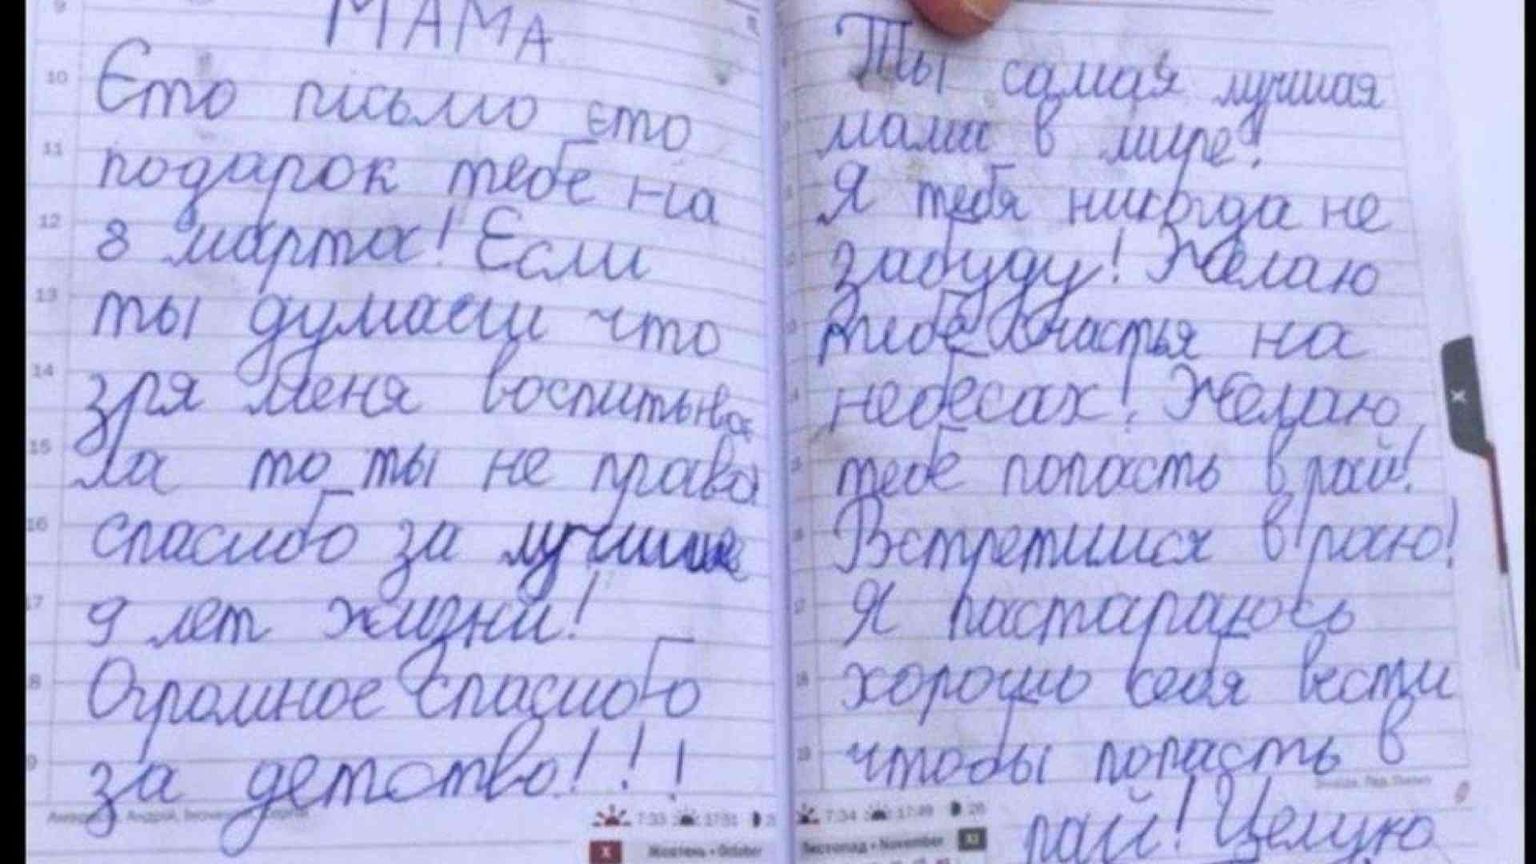 МАМА
Єто письмо єто
подарок тебе на
8 марта! Если
ты думаеш что
зря меня воспитыва
ла то ты не права
спасибо за лучшие
9 лет жизни!
Огромное спасибо
за детство!!!
Ты самая лучшая
мама в мире!
Я тебя никогда не
забуду! Желаю
тебе счастья на
небесах! Желаю
тебе попасть в рай!
Встретимся в раю!
Я пастараюсь
хорошо себя вести
чтобы попасть в
рай! Целую
10
11
12
13
14
15
16
7:33 17:51
X Жовтень • October
7:34 17:49
Листопад • November XI
X